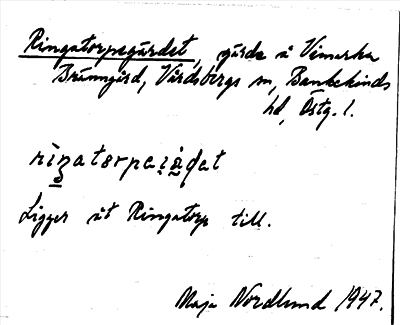 Ringatorpsgärdet, gärde å Vimarka
Brånngård, Vårdsbergs sn, Bankekinds
hd, Östg. l.
Ligger åt Ringatorp till.
Maja Nordlund 1947.